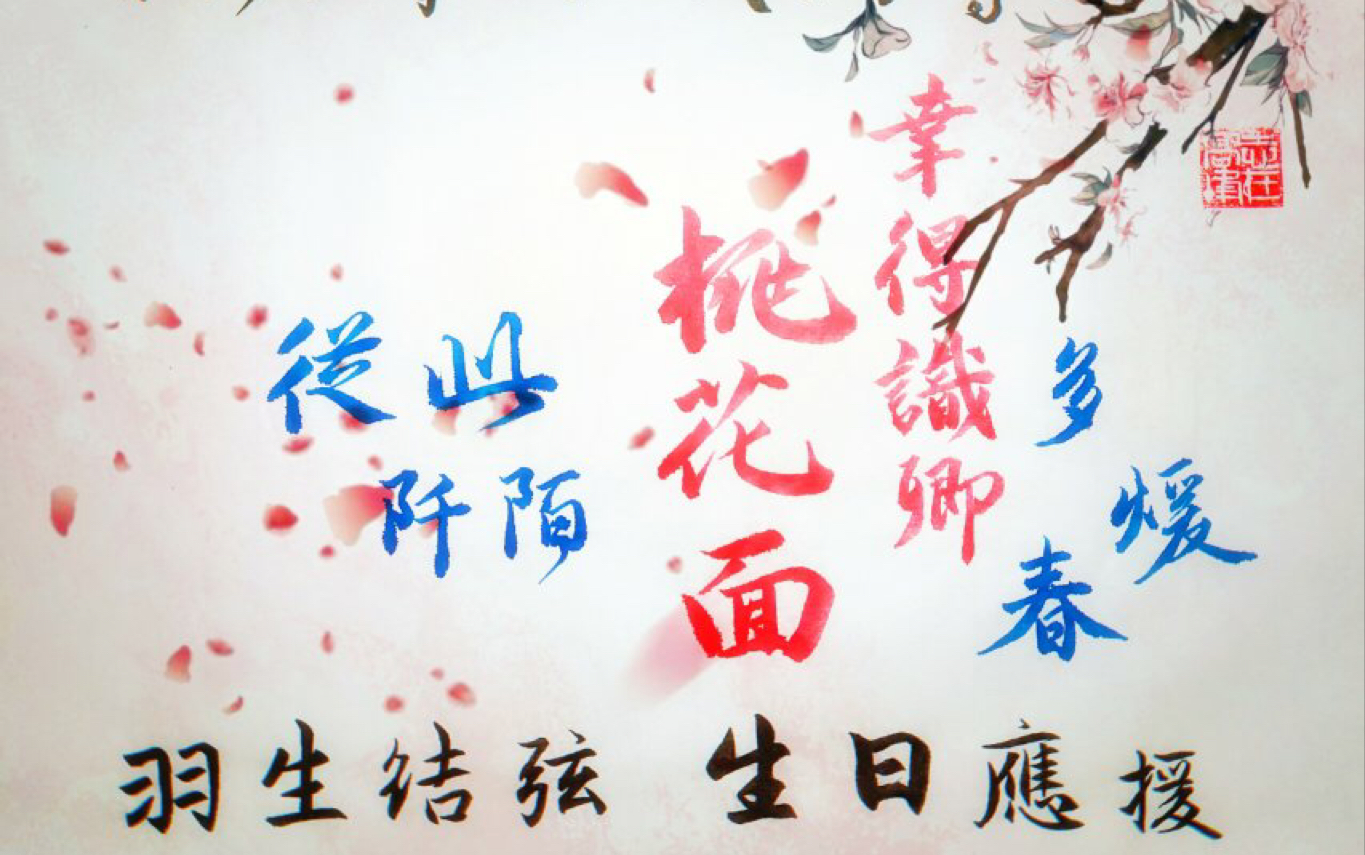 幸得識卿
桃花面
從此
阡陌
多
煖
春
羽生结弦 生日應援